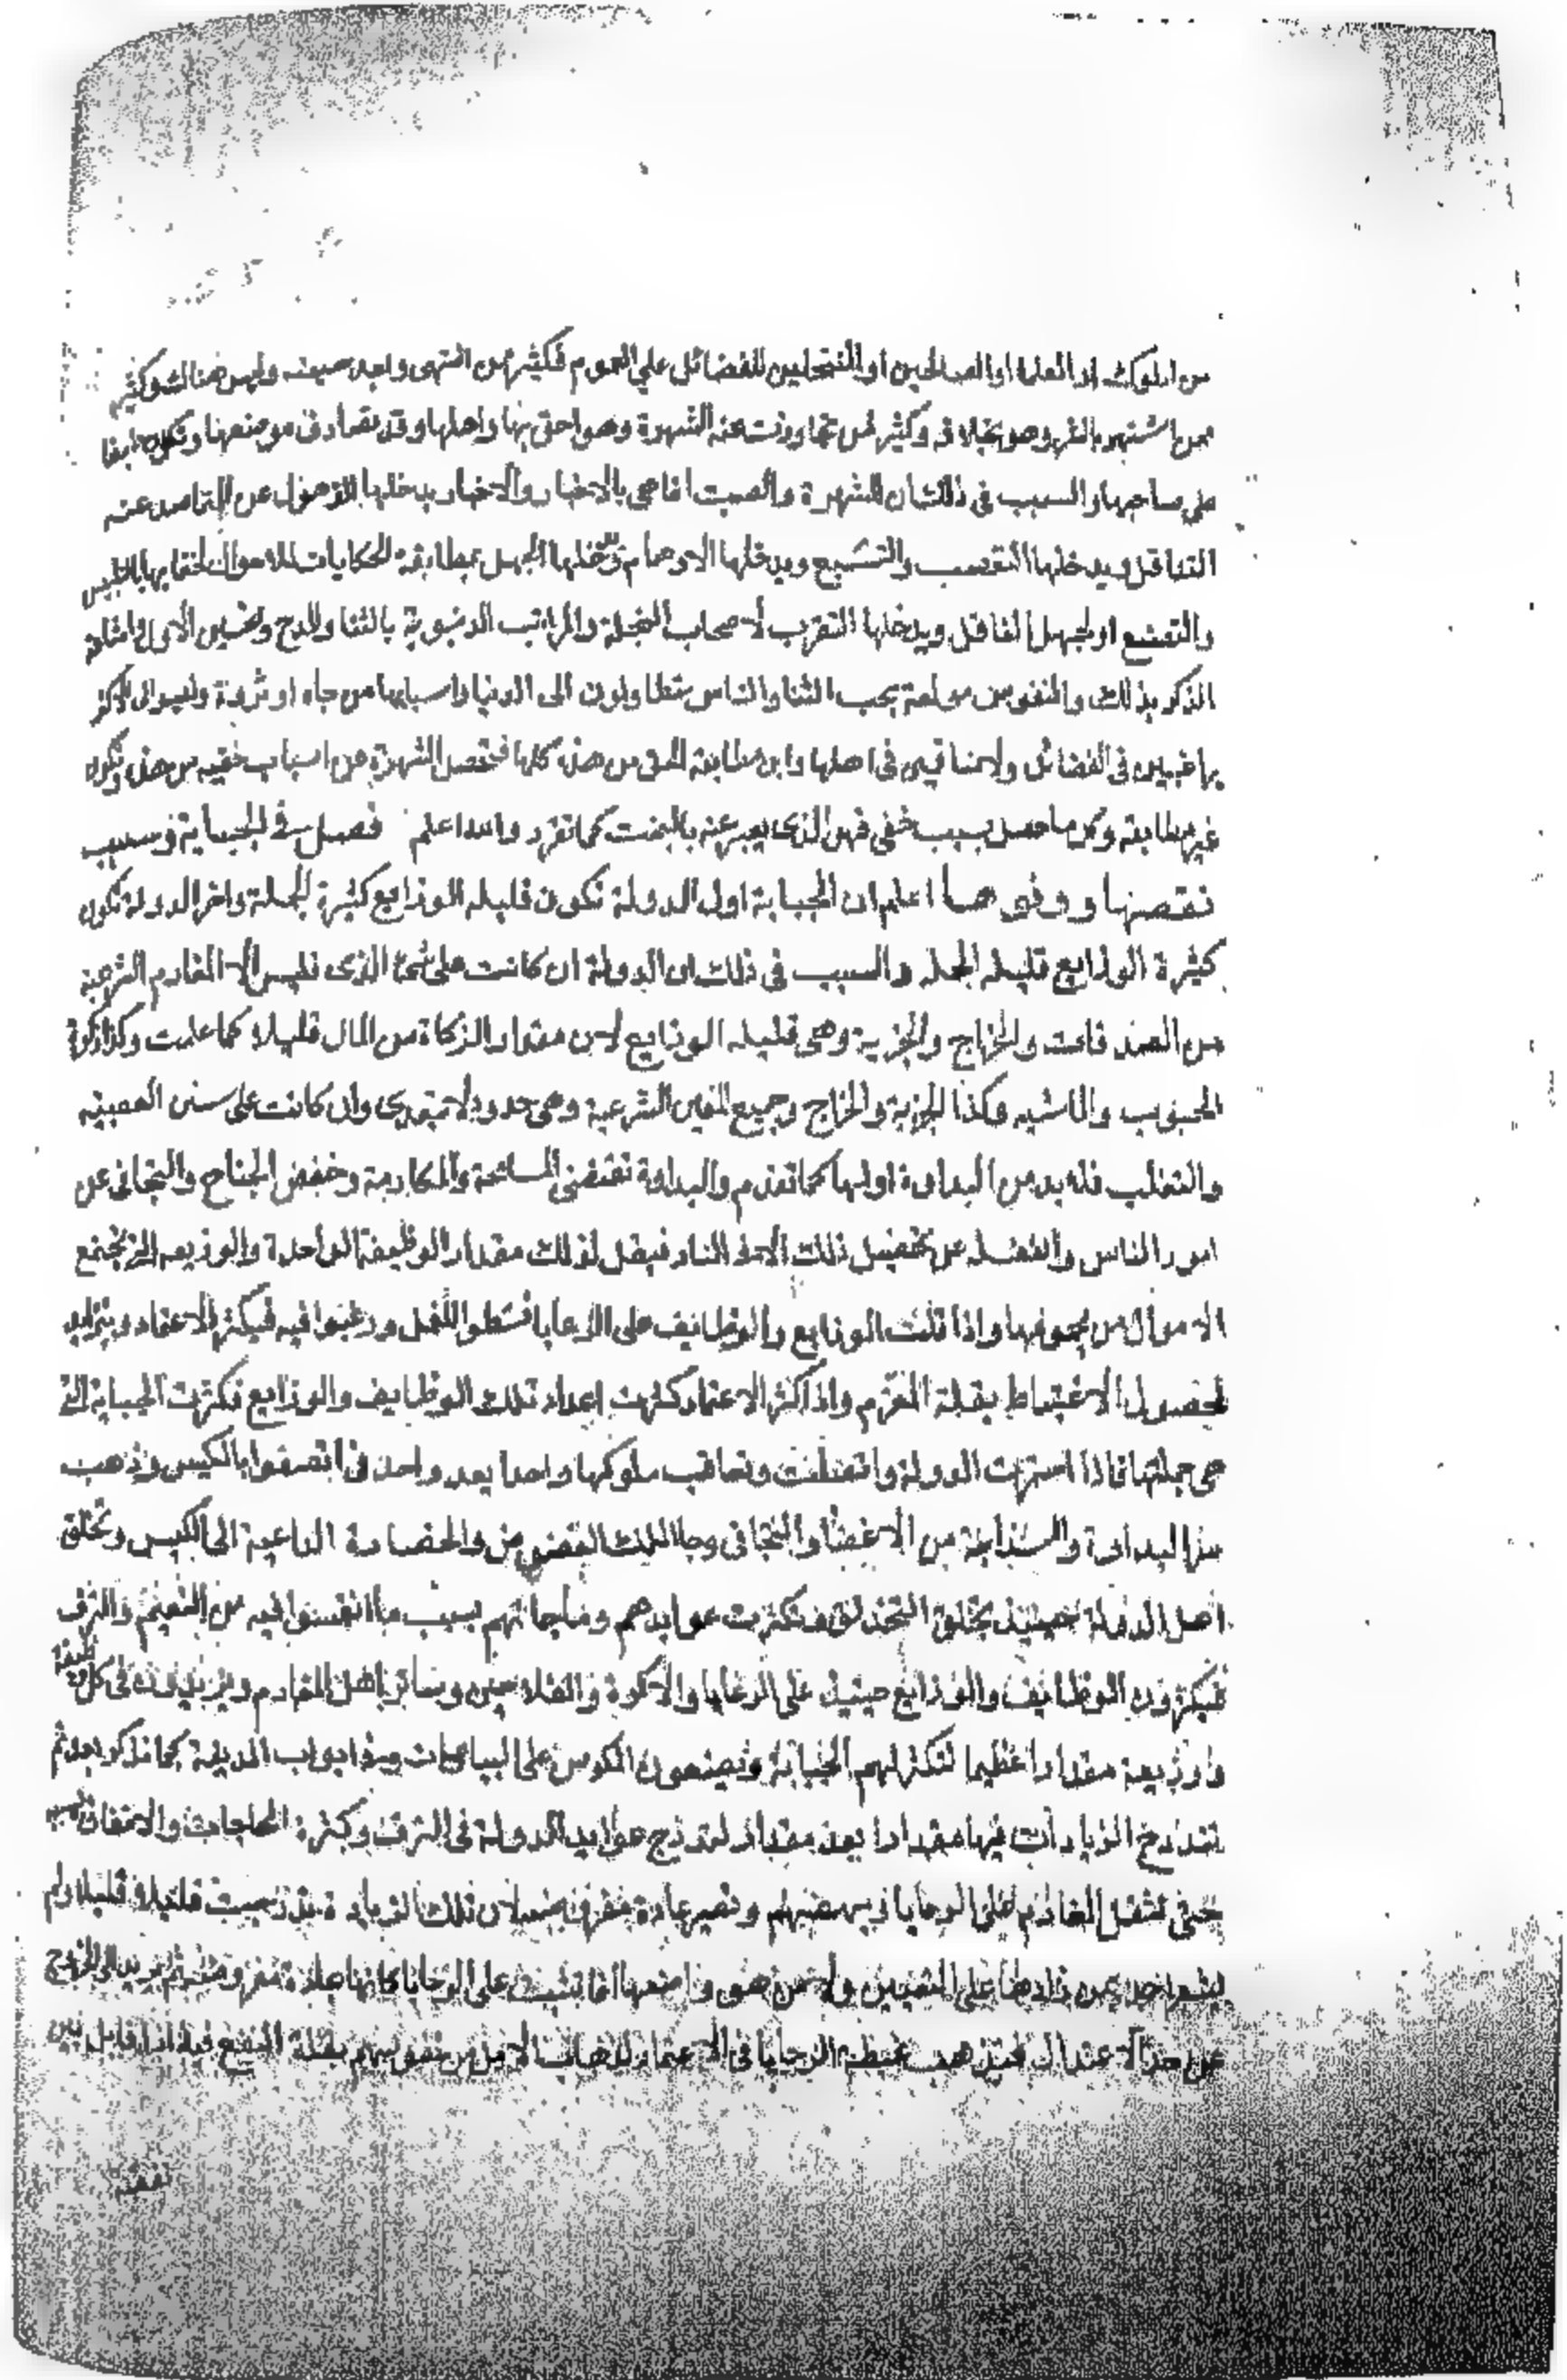 من الملوك او العلماء او الصالحين او المنتحلين للفضائل على العموم فكثير ممن اشتهر وليس هناك وكثير
ممن اشتهر بالشر وهو بخلافه وكثير ممن تجاوزت عنه الشهرة وهو احق بها واهلها وقد تصادف موضعها وتكون طبقا
على صاحبها والسبب فى ذلك ان الشهرة والصيت انما هى بالاخبار والاخبار يدخلها الذهول عن المقاصد عند
التناقل ويدخلها التعصب والتشيع ويدخلها الاوهام ويدخلها الجهل بمطابقة الحكايات للاحوال لخفايها بالتلبيس
والتصنع او لجهل الناقل ويدخلها التقرب لاصحاب التجلة والمراتب الدنيوية بالثنا والمدح وتحسين الاحوال واشاعة
الذكر بذلك والنفوس مولعة بحب الثنا والناس متطاولون الى الدنيا واسبابها من جاه او ثروة وليسوا فى الاكثر
براغبين فى الفضائل ولا منافسين فى اهلها واين مطابقة الحق من هذه كلها فتحصل الشهرة عن اسباب خفيه من هذه وتكون
غير مطابقة وكل ما حصل بسبب خفى فهو الذى يعبر عنه بالبخت كما تقرر والله اعلم فصل فى الجباية وسبب
نقصها ووفورها اعلم ان الجباية اول الدولة تكون قليله الوزايع كثيرة الجملة واخر الدولة تكون
كثيرة الوزايع قليله الجمله والسبب فى ذلك ان الدولة ان كانت على سنن الدين فليس الا المغارم الشرعية
من الصدقات والخراج والجزية وهى قليله الوزايع لان مقدار الزكاة من المال قليل كما علمت وكذا زكوة
الحبوب والماشيه وكذا الجزية والخراج وجميع المغارم الشرعية وهى حدود لا تتعدى وان كانت على سنن العصبيه
والتغلب فلا بد من البداوة اولها كما تقدم والبداوة تقتضى المسامحة والمكارمة وخفض الجناح والتجافى عن
اموال الناس والغفلة عن تحصيل ذلك الا فى النادر فيقل لذلك مقدار الوظيفة الواحدة والوزيعه التى تجتمع
الاموال من مجموعها واذا قلت الوزايع والوظايف على الرعايا نشطوا للعمل ورغبوا فيه فيكثر الاعتمار ويتزايد
لحصول الاغتباط بقلة المغرم واذا كثر الاعتمار كثرت اعداد تلك الوظايف والوزايع فكثرت الجباية التى
هى جملتها فاذا استمرت الدولة واتصلت وتعاقب ملوكها واحدا بعد واحد واتصفوا بالكيس وذهب
سر البداوة والسذاجة من الاغضا والتجافى وجا الملك العضوض والحضارة الداعية الى الكيس وتخلق
اهل الدولة حينيذ بخلق التحذلق وتكثرت عوايدهم وحاجاتهم بسبب ما انغمسوا فيه من النعيم والترف
فيكثرون الوظايف والوزايع حينيذ على الرعايا والاكرة والفلاحين وساير اهل المغارم ويزيدون فى كل وظيفة
ووزيعة مقدارا عظيما لتكثر لهم الجباية ويضعون المكوس على البياعات وفى ابواب المدينة كما نذكر بعد ثم
تتدرج الزيادات فيها مقدارا بعد مقدار لتدرج عوايد الدولة فى الترف وكثرة الحاجات والانفاق بسببه
حتى تثقل المغارم على الرعايا وتهضمهم وتصير عادة مفروضة لان تلك الزيادة تدرجت قليلا قليلا ولم
يشعر احد بمن زادها على التعيين ولا من هو واضعها انما تثبت على الرعايا كانها عادة مفروضة ثم تزيد الى الخروج
عن حد الاعتدال فتذهب غبطة الرعايا فى الاعتمار لذهاب الامل من نفوسهم بقلة النفع فيه اذا قابل بين
نفعه